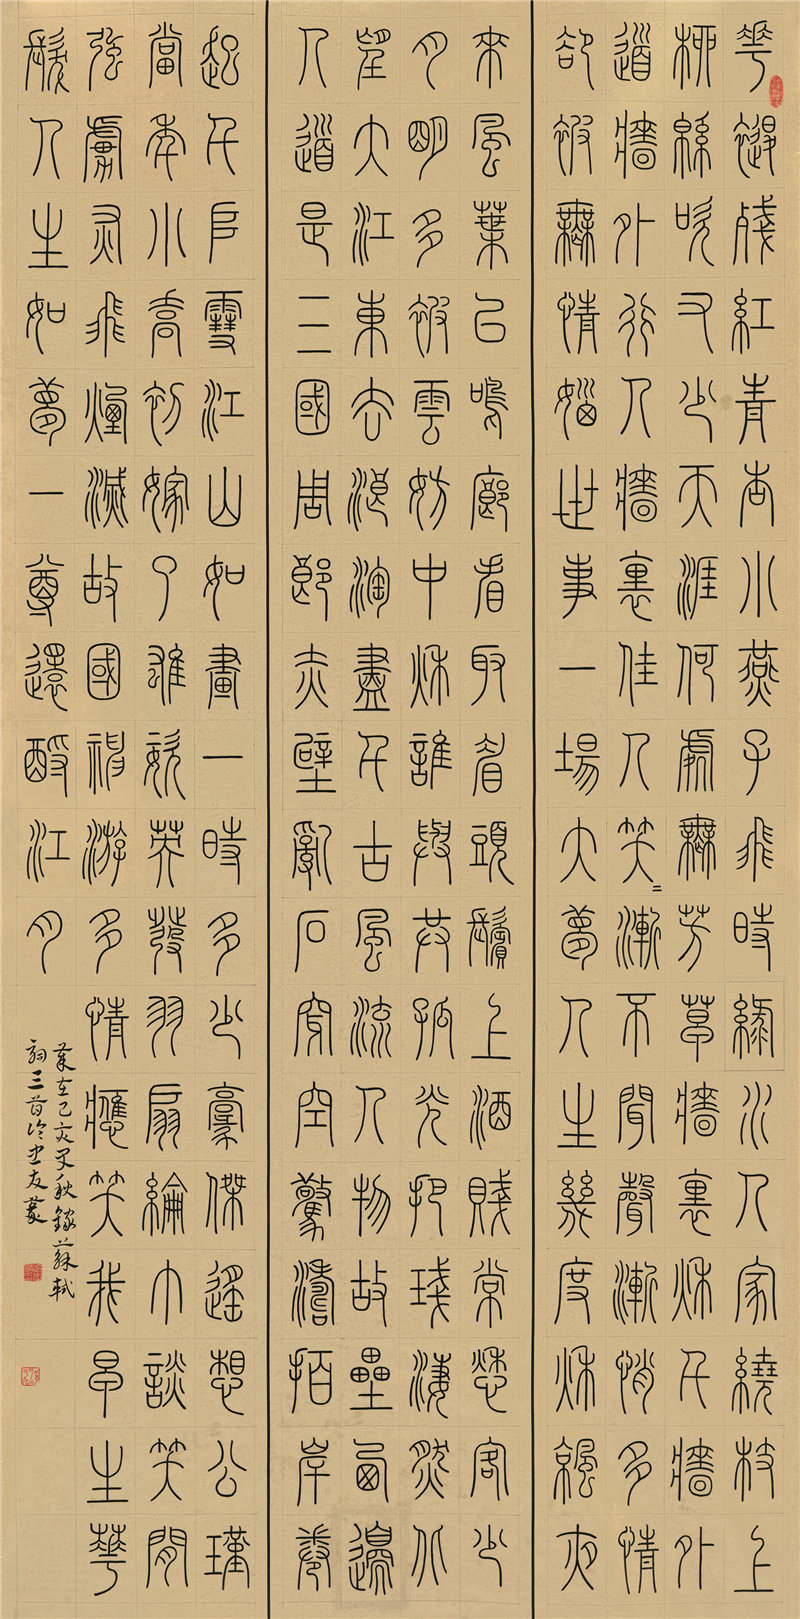 花褪殘紅青杏小燕子飛時綠水人家繞枝上
柳緜吹又少天涯何處無芳草牆裏秋千牆外
道牆外行人牆裏佳人笑=漸不聞聲漸悄多情
卻被無情惱世事一場大夢人生幾度秋涼夜
來風葉已鳴廊看取眉頭鬢上酒賤常愁客少
月明多被雲妨中秋誰與共孤光把琖淒然北
望大江東去浪淘盡千古風流人物故壘西邊
人道是三國周郎赤壁亂石穿空驚濤拍岸卷
起千堆雪江山如畫一時多少豪傑遙想公瑾
當年小喬初嫁了雄姿英發羽扇綸巾談笑間
強虜灰飛煙滅故國神游多情應笑我早生華
髮人生如夢一尊還酹江月
歲在己亥秋錄蘇軾
詞三首友篆